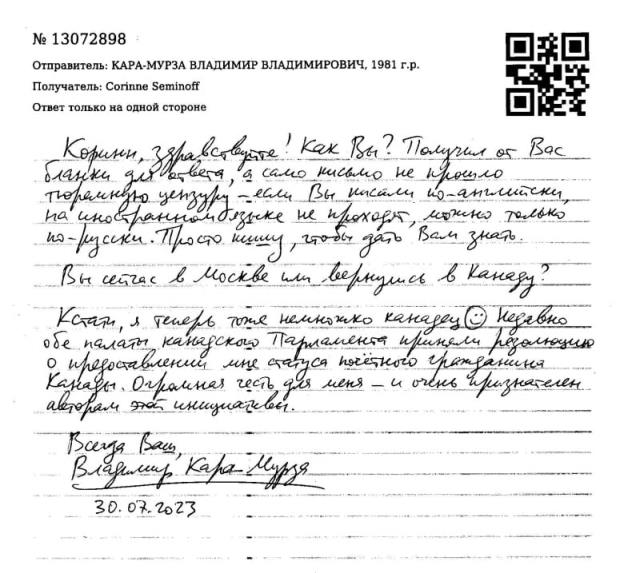 № 13072898
Отправитель: КАРА-МУРЗА ВЛАДИМИР ВЛАДИМИРОВИЧ, 1981 г.р.
Получатель: Corinne Seminoff
Ответ только на одной стороне
Коринн, здравствуйте! Как Вы? Получил от Вас
бланки для ответа, а само письмо не прошло
тюремную цензуру – если Вы писали по-английски,
на иностранном языке не проходят, можно только
по-русски. Просто пишу, чтобы дать Вам знать.
Вы сейчас в Москве или вернулись в Канаду?
Кстати, я теперь тоже немножко канадец ☺ Недавно
обе палаты канадского Парламента приняли резолюцию
о предоставлении мне статуса почётного гражданина
Канады. Огромная честь для меня – и очень признателен
авторам этой инициативы.
Всегда Ваш,
Владимир Кара-Мурза
30.07.2023